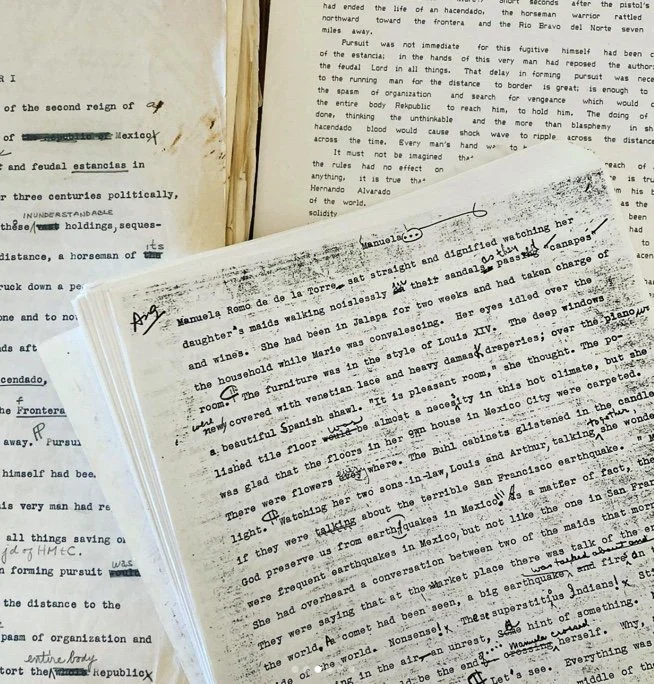 R I
of the second reign of
of Mexico
f and feudal estancias in
r three centuries politically,
INUNDERSTANDABLE
these holdings, seques-
its
distance, a horseman of
ruck down a pe
one and to no
nds aft
cendado,
he Frontera
away. Pursui
himself had bee
is very man had re
all things saving o
jd of HM+C.
was
n forming pursuit would
the distance to the
pasm of organization and
entire body
tort the Republic
had ended the life of an hacendado, the horseman warrior rattled
northward toward the frontera and the Rio Bravo del Norte seven
miles away.
Pursuit was not immediate for this fugitive himself had been c
of the estancia; in the hands of this very man had reposed the author
the feudal Lord in all things. That delay in forming pursuit was nece
to the running man for the distance to border is great; is enough to
the spasm of organization and search for vengeance which would
the entire body Rekpublic to reach him, to hold him. The doing of
done, thinking the unthinkable and the more than blasphemy in sh
hacendado blood would cause shock wave to ripple across the distance
across the time. Every man's hand
It must not be imagined tha
the rules had no effect on
anything, it is true that
Hernando Alvarado
of the world.
solidity
reach of
is tru
been
had
Manuela...
Manuela Romo de de la Torre sat straight and dignified watching her
daughter's maids walking noiselessly in their sandals as they passed "canapes"
and wines. She had been in Jalapa for two weeks and had taken charge of
the household while Marie was convalescing. Her eyes idled over the
room. The furniture was in the style of Louis XIV. The deep windows
were newly covered with venetian lace and heavy damask draperies; over the piano was
a beautiful Spanish shawl. "It is pleasant room," she thought. The po-
lished tile floor was would be almost a necesity in this hot climate, but she
was glad that the floors in her own house in Mexico City were carpeted.
There were flowers everywhere. The Buhl cabinets glistened in the candle
light. Watching her two sons-in-law, Louis and Arthur, talking together, she wonde
if they were talking about the terrible San Francisco earthquake. " M
God preserve us from earthquakes in Mexico!! As a matter of fact, the
were frequent earthquakes in Mexico, but not like the one in San Fran
She had overheard a conversation between two of the maids that morn
They were saying that at the Market place there was talk of the en
was talked about and
the world. A comet had been seen, a big earthquake and fire in
of the world. Nonsense! These superstitious Indians! St
ing in the air, an unrest, some hint of something.
Manuela crossed
be the end crossing herself. Why,
Let's see. Everything was
middle of the